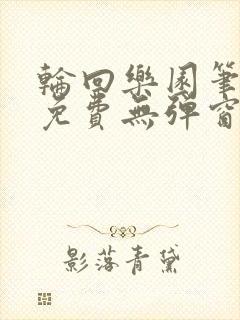 輪回樂園筆
免費無彈窗
影落青黛